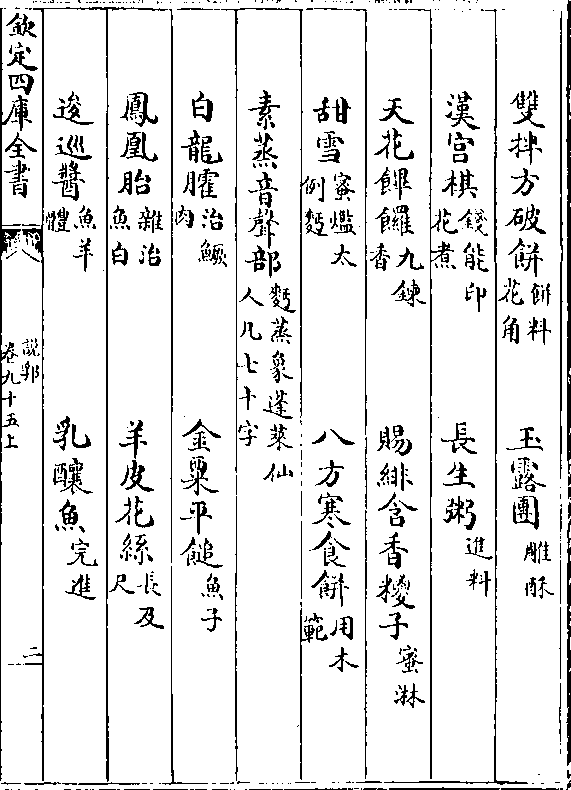 雙拌方破餅 餅料花角 玉露團 雕酥
漢宫棋 錢能印花煮 長生粥 進料
天花饆饠 九鍊香 賜緋含香糭子 蜜淋
甜雪 蜜爁太例麪 八方寒食餅 用木範
素蒸音聲部 麪蒸象蓬萊仙人凡七十字
白龍臛 治鱖肉 金粟平䭔 魚子
鳳凰胎 雜治魚白 羊皮花絲 長及尺
逡巡醬 魚羊體 乳釀魚 完進
欽定四庫全書 說郛卷九十五上 二